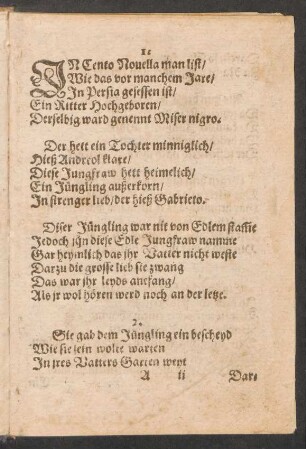 1.
IN Cento Nouella man list/
Wie das vor manchem Jare/
In Persia gesessen ist/
Ein Ritter Hochgeboren/
Derselbig ward genennt Miser nigro.
Der hett ein Tochter minniglich/
Hieß Andreol klare/
Diese Jungfraw hett heimelich/
Ein Jüngling außerkorn/
In strenger lieb/der hieß Gabrieto.
Diser Jüngling war nit von Edlem stam̃e
Jedoch jn diese Edle Jungfraw namme
Gar heymlich das jhr Vatter nicht weste
Darzu die grosse lieb sie zwang
Das war jhr leyds anfang/
Als jr wol hören werd noch an der letze.
2.
Sie gab dem Jüngling ein bescheyd
Wie sie sein wolte warten
In jres Vatters Garten weyt
A ii Dar-